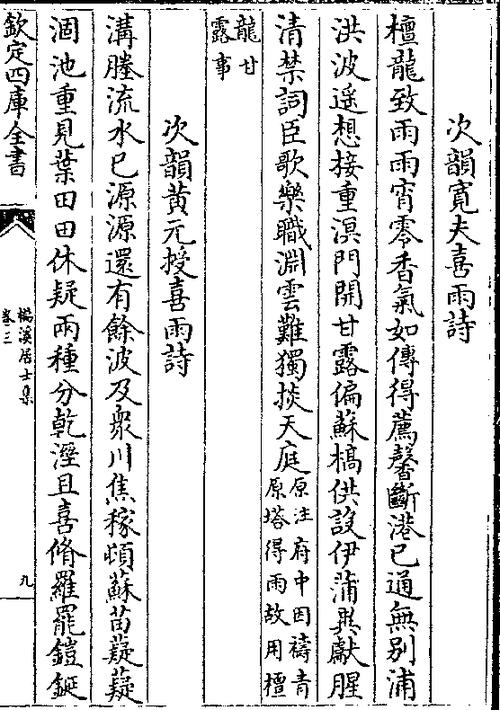 次韻寛夫喜雨詩
檀龍致雨雨宵零香氣如傳得薦馨斷港已通無別浦
洪波遥想接重溟門開甘露偏蘇槁供設伊蒲異獻腥
清禁詞臣歌樂職淵雲難獨掞天庭原注府中因禱青
原塔得雨故用檀
龍甘
露事
次韻黄元授喜雨詩
溝塍流水已源源還有餘波及衆川焦稼頓蘇苗薿薿
涸池重見葉田田休疑兩種分乾溼且喜脩羅罷鎧鋋
欽定四庫全書
楊溪居士集
卷三
九